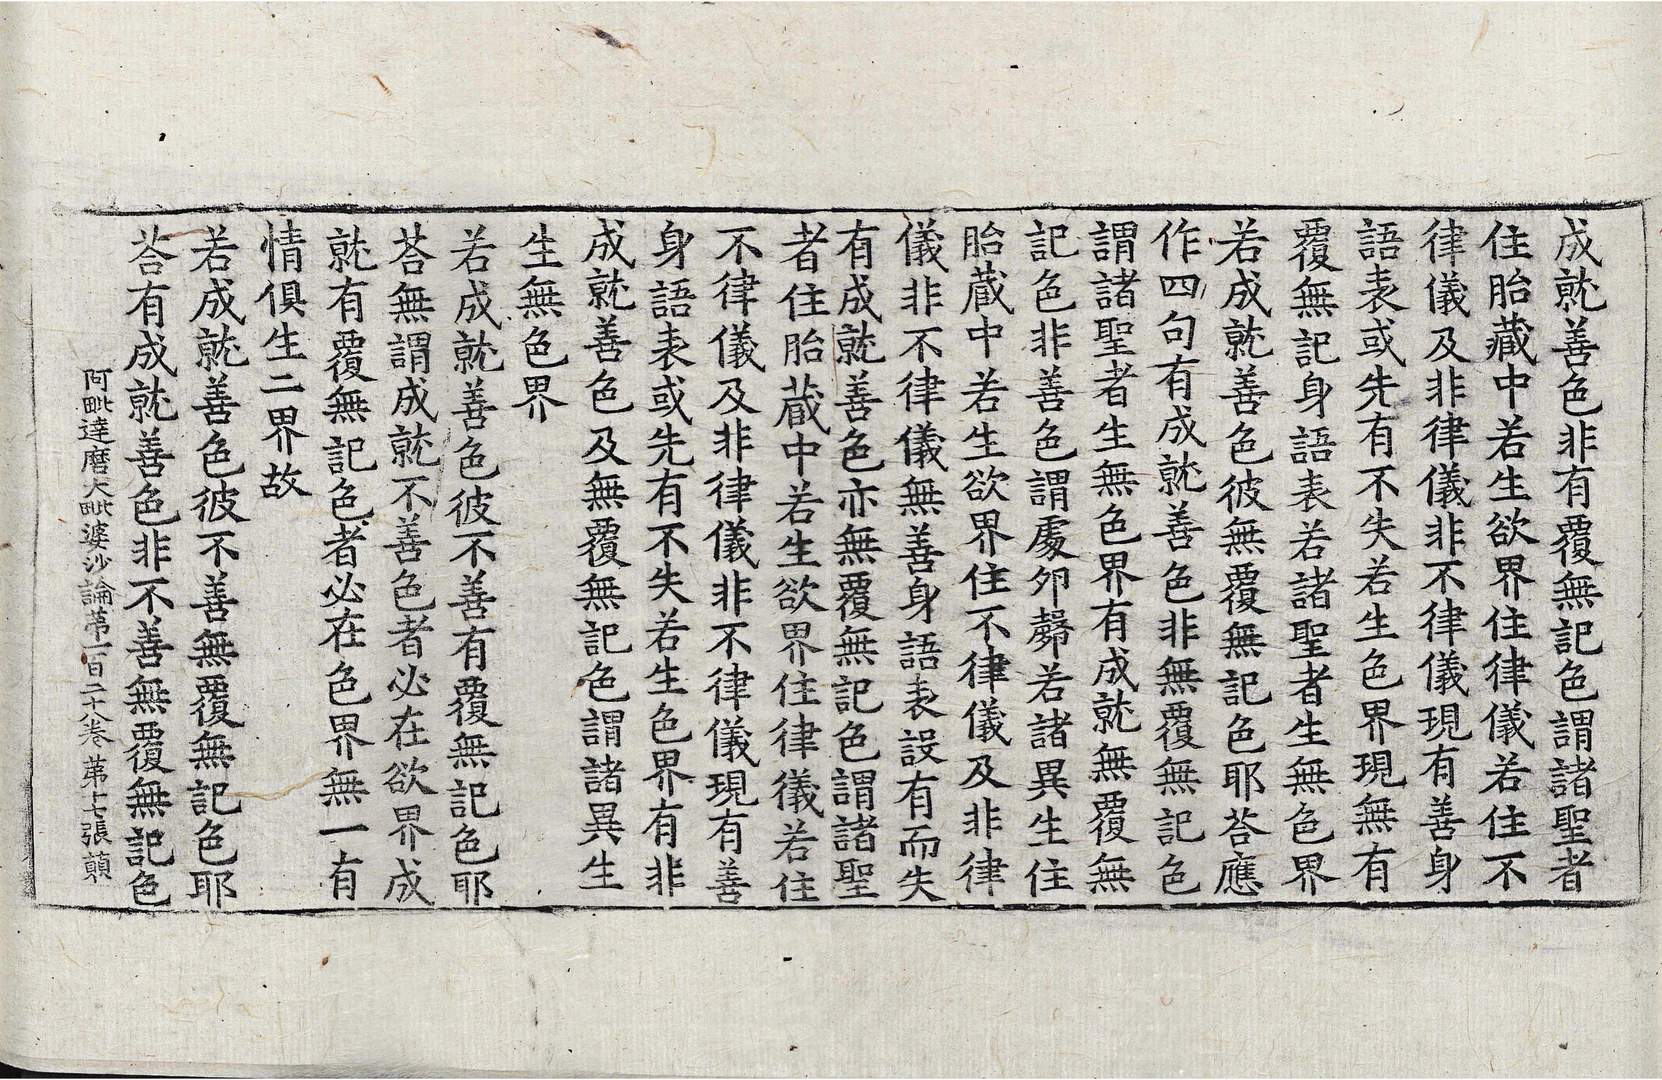 成就善色非有覆無記色謂諸聖者
住胎藏中若生欲界住律儀若住不
律儀及非律儀非不律儀現有善身
語表或先有不失若生色界現無有
覆無記身語表若諸聖者生無色界
若成就善色彼無覆無記色耶荅應
作四句有成就善色非無覆無記色
謂諸聖者生無色界有成就無覆無
記色非善色謂處卵㲉若諸異生住
胎藏中若生欲界住不律儀及非律
儀非不律儀無善身語表設有而失
有成就善色亦無覆無記色謂諸聖
者住胎藏中若生欲界住律儀若住
不律儀及非律儀非不律儀現有善
身語表或先有不失若生色界有非
成就善色及無覆無記色謂諸異生
生無色界
若成就善色彼不善有覆無記色耶
荅無謂成就不善色者必在欲界成
就有覆無記色者必在色界無一有
情俱生二界故
若成就善色彼不善無覆無記色耶
荅有成就善色非不善無覆無記色
阿毗達磨大毗婆沙論第一百二十八卷 第十七張 顚